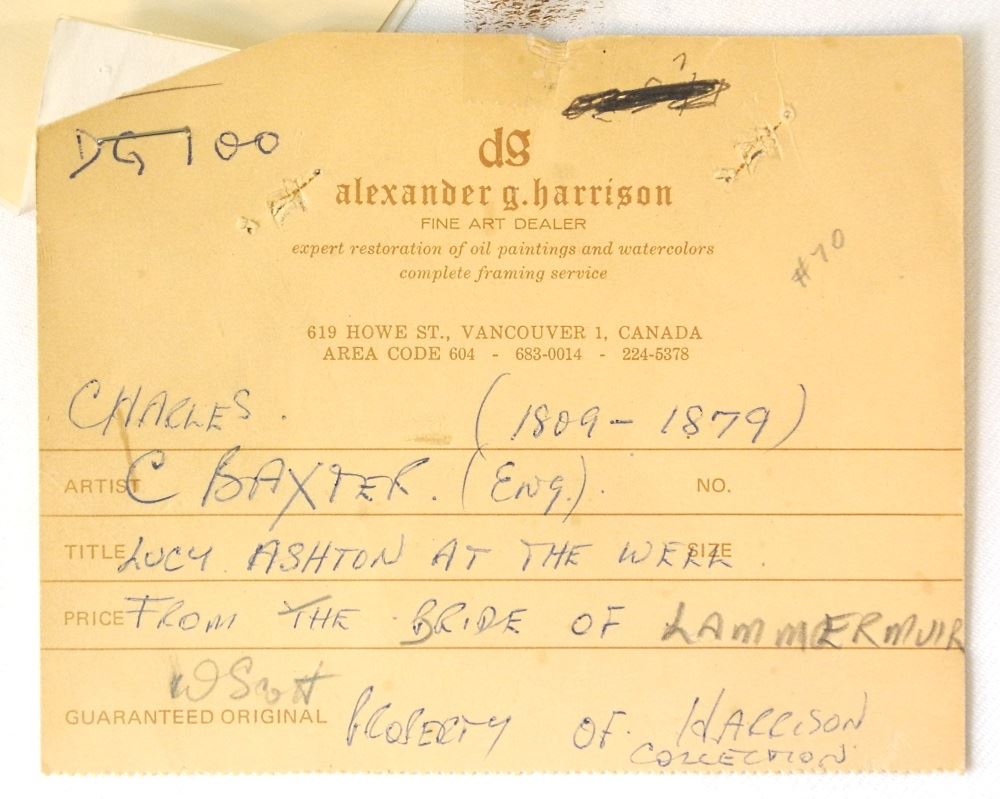 DG 100
dg
alexander g. harrison
FINE ART DEALER
expert restoration of oil paintings and watercolors
complete framing service
#70
619 HOWE ST., VANCOUVER 1, CANADA
AREA CODE 604 - 683-0014 - 224-5378
CHARLES. (1809-1879)
ARTIST C BAXTER. (Eng.). NO.
TITLE LUCY ASHTON AT THE WELL. SIZE
PRICE FROM THE BRIDE OF LAMMERMUIR
W Scott
GUARANTEED ORIGINAL PROPERTY OF HARRISON
COLLECTION